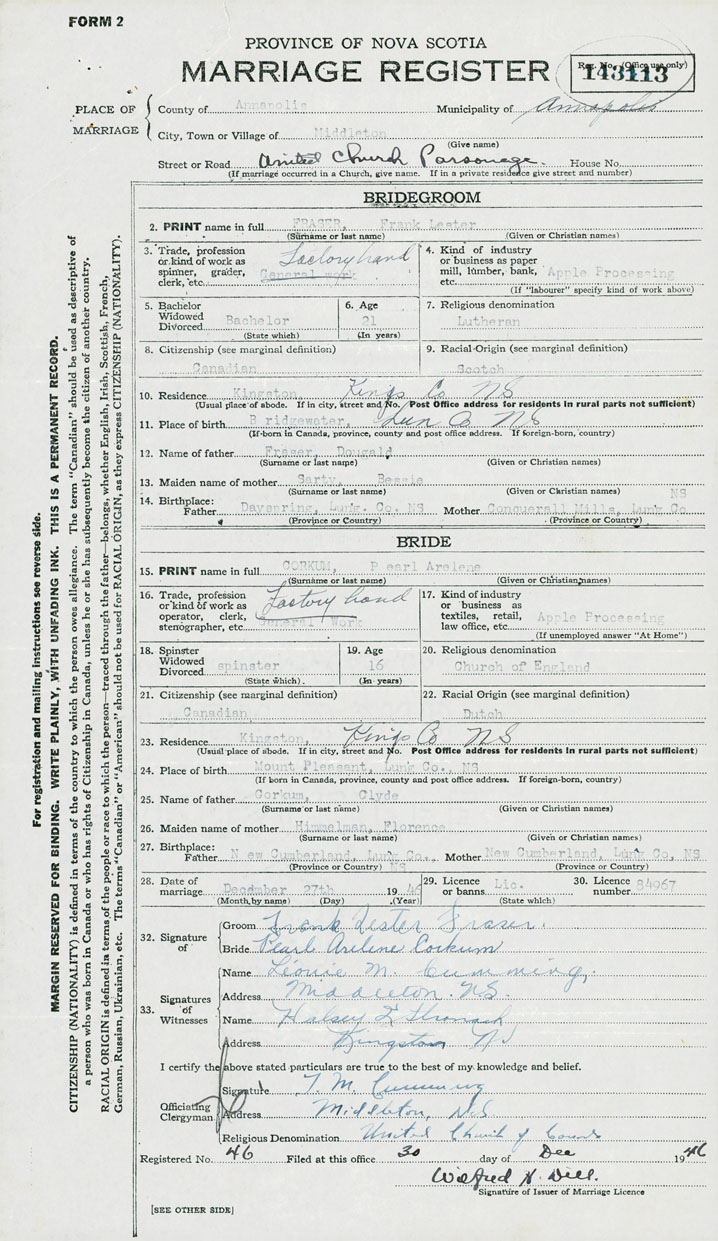 FORM 2
PROVINCE OF NOVA SCOTIA
MARRIAGE REGISTER
Reg. No. (Office use only)
143113
PLACE OF MARRIAGE
County of Annapolis Municipality of Annapolis
City, Town or Village of Middleton
(Give name)
Street or Road United Church Parsonage. House No.
(If marriage occurred in a Church, give name. If in a private residence give street and number)
BRIDEGROOM
2. PRINT name in full FRASER, Frank Lester
(Surname or last name) (Given or Christian names)
3. Trade, profession or kind of work as spinner, grader, clerk, etc. Factory hand General work
4. Kind of industry or business as paper mill, lumber, bank, etc. Apple Processing
(If "labourer" specify kind of work above)
5. Bachelor Widowed Divorced Bachelor
(State which)
6. Age 21
(In years)
7. Religious denomination
Lutheran
8. Citizenship (see marginal definition)
Canadian
9. Racial Origin (see marginal definition)
Scotch
10. Residence Kingston, Kings Co NS
(Usual place of abode. If in city, street and No. Post Office address for residents in rural parts not sufficient)
11. Place of birth Bridgewater, Lun Co NS
(If born in Canada, province, county and post office address. If foreign-born, country)
12. Name of father Fraser, Dougald
(Surname or last name) (Given or Christian names)
13. Maiden name of mother Sarty, Bessie
(Surname or last name) (Given or Christian names)
14. Birthplace: Father Dayspring, Lung. Co. NS Mother Conquerall Mills, Lung Co NS
(Province or Country) (Province or Country)
BRIDE
15. PRINT name in full CORKUM, Pearl Arelene
(Surname or last name) (Given or Christian names)
16. Trade, profession or kind of work as operator, clerk, stenographer, etc. Factory hand General Work
17. Kind of industry or business as textiles, retail, law office, etc. Apple Processing
(If unemployed answer "At Home")
18. Spinster Widowed Divorced spinster
(State which)
19. Age 16
(In years)
20. Religious denomination
Church of England
21. Citizenship (see marginal definition)
Canadian
22. Racial Origin (see marginal definition)
Dutch
23. Residence Kingston, Kings Co NS
(Usual place of abode. If in city, street and No. Post Office address for residents in rural parts not sufficient)
24. Place of birth Mount Pleasant, Lung Co., NS
(If born in Canada, province, county and post office address. If foreign-born, country)
25. Name of father Corkum, Clyde
(Surname or last name) (Given or Christian names)
26. Maiden name of mother Himmelman, Florence
(Surname or last name) (Given or Christian names)
27. Birthplace: Father New Cumberland, Lung Co., NS Mother New Cumberland, Lung Co, NS
(Province or Country) (Province or Country)
28. Date of marriage December 27th 1946
(Month by name) (Day) (Year)
29. Licence or banns Lic.
(State which)
30. Licence number 84967
32. Signature of
Groom Frank Lester Fraser.
Bride Pearl Arelene Corkum
33. Signatures of Witnesses
Name Louise M. Cumming,
Address Middleton. N.S.
Name Halsey
Address Kingston NS
I certify the above stated particulars are true to the best of my knowledge and belief.
Officiating Clergyman
Signature T. M. Cumming
Address Middleton, N.S.
Religious Denomination United Church of Canada
Registered No. 46 Filed at this office 30 day of Dec 1946
Wilfred N. Dill.
Signature of Issuer of Marriage Licence
[SEE OTHER SIDE]
For registration and mailing instructions see reverse side.
MARGIN RESERVED FOR BINDING. WRITE PLAINLY, WITH UNFADING INK. THIS IS A PERMANENT RECORD.
CITIZENSHIP (NATIONALITY) is defined in terms of the country to which the person owes allegiance. The term "Canadian" should be used as descriptive of
a person who was born in Canada or who has rights of Citizenship in Canada, unless he or she has subsequently become the citizen of another country.
RACIAL ORIGIN is defined in terms of the people or race to which the person—traced through the father—belongs, whether English, Irish, Scottish, French,
German, Russian, Ukrainian, etc. The terms "Canadian" or "American" should not be used for RACIAL ORIGIN, as they express CITIZENSHIP (NATIONALITY).